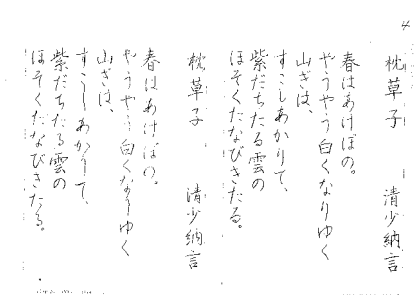 4
枕草子 清少納言
春はあけぼの。
やうやう白くなりゆく
山ぎは、
すこしあかりて、
紫だちたる雲の
ほそくたなびきたる。
枕草子 清少納言
春はあけぼの。
やうやう白くなりゆく
山ぎは、
すこしあかりて、
紫だちたる雲の
ほそくたなびきたる。